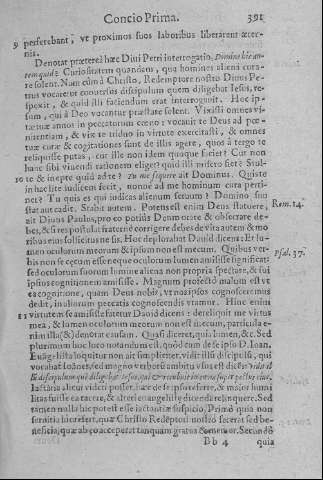 Concio Prima. 391
9 perferebant, ut proximos suos laboribus liberarent æter-
nis.
Denotat præterea hæc Divi Petri interrogatio, Domine hic au-
tem quid? Curiositatem quandam, qua homines aliena cura-
re solent. Nam cùm à Christo, Redemptore nostro Divus Pe-
trus vocaretur conversus discipulum quem diligebat Iesus, re-
spexit, & quid illi faciendum erat interrogavit. Hoc ip-
sum, qui à Deo vocantur præstare solent. Vixisti omnes vi-
tæ tuæ annos in peccatorum cœno: vocavit te Deus ad pœ-
nitentiam, & vix te triduo in virtute exercitasti, & omnes
tuæ curæ & cogitationes sunt de illis agere, quos à tergo te
reliquisse putas, cur ille non idem quoque facit? Cur non
hanc sibi vivendi rationem eliget? quid illi misero fiet? Stul-
10 te & inepte quid ad te? Tu me sequere ait Dominus. Quis te
in hac lite iudicem fecit, nonne ad me hominum cura perti-
net? Tu quis es qui iudicas alienum servum? Domino suo
stat aut cadit. Stabit autem. Potens est enim Deus statuere, Rom. 14.
ait Divus Paulus, pro eo potius Deum orare & obsecrare de-
bes, & si res postulat fraterné corrigere debes de vita autem & mo-
ribus eius sollicitus ne sis. Hoc deplorabat David dicens: Et lu-
men oculorum meorum & ipsum non est mecum. Quibus ver- Psal. 37.
bis non se cæcum esse neque oculorum lumen amisisse significat:
sed oculorum suorum lumine aliena non propria spectare, & sui
ipsius cognitionem amisisse. Magnum profectò malum est ut
ea cognitione, quam Deus nobis, ut nos ipsos cognosceremus
dedit, in aliorum peccatis cognoscendis utamur. Hinc enim
11 virtutem se amisisse fatetur David dicens: dereliquit me virtus
mea, & lumen oculorum meorum non est mecum, particula e-
nim illa (&) denotat causam. Quasi diceret, quia lumen, &c. Sed
plurimùm huc loco notandum est, quòd cùm de se ipso D. Ioan.
Euangelista loquitur non ait simpliciter, vidit illum discipulum, qui
vocabat Ioãnes, sed magno verborũ ambitu usus est dicẽs:
iactãtia alicui videri posset, hæc de se ipso referre, & maior humi
litas fuisse ea tacere, & alteri euangelistę dicenda relinquere. Sed
tamen nulla hic potest esse iactantiæ suspicio, Primò quia non
fordita his refert, quæ Christo Redẽptori nostro
neficia, quæ ab eo acceperat tanquam gratus & memor. Secundò
Bb 4 quia